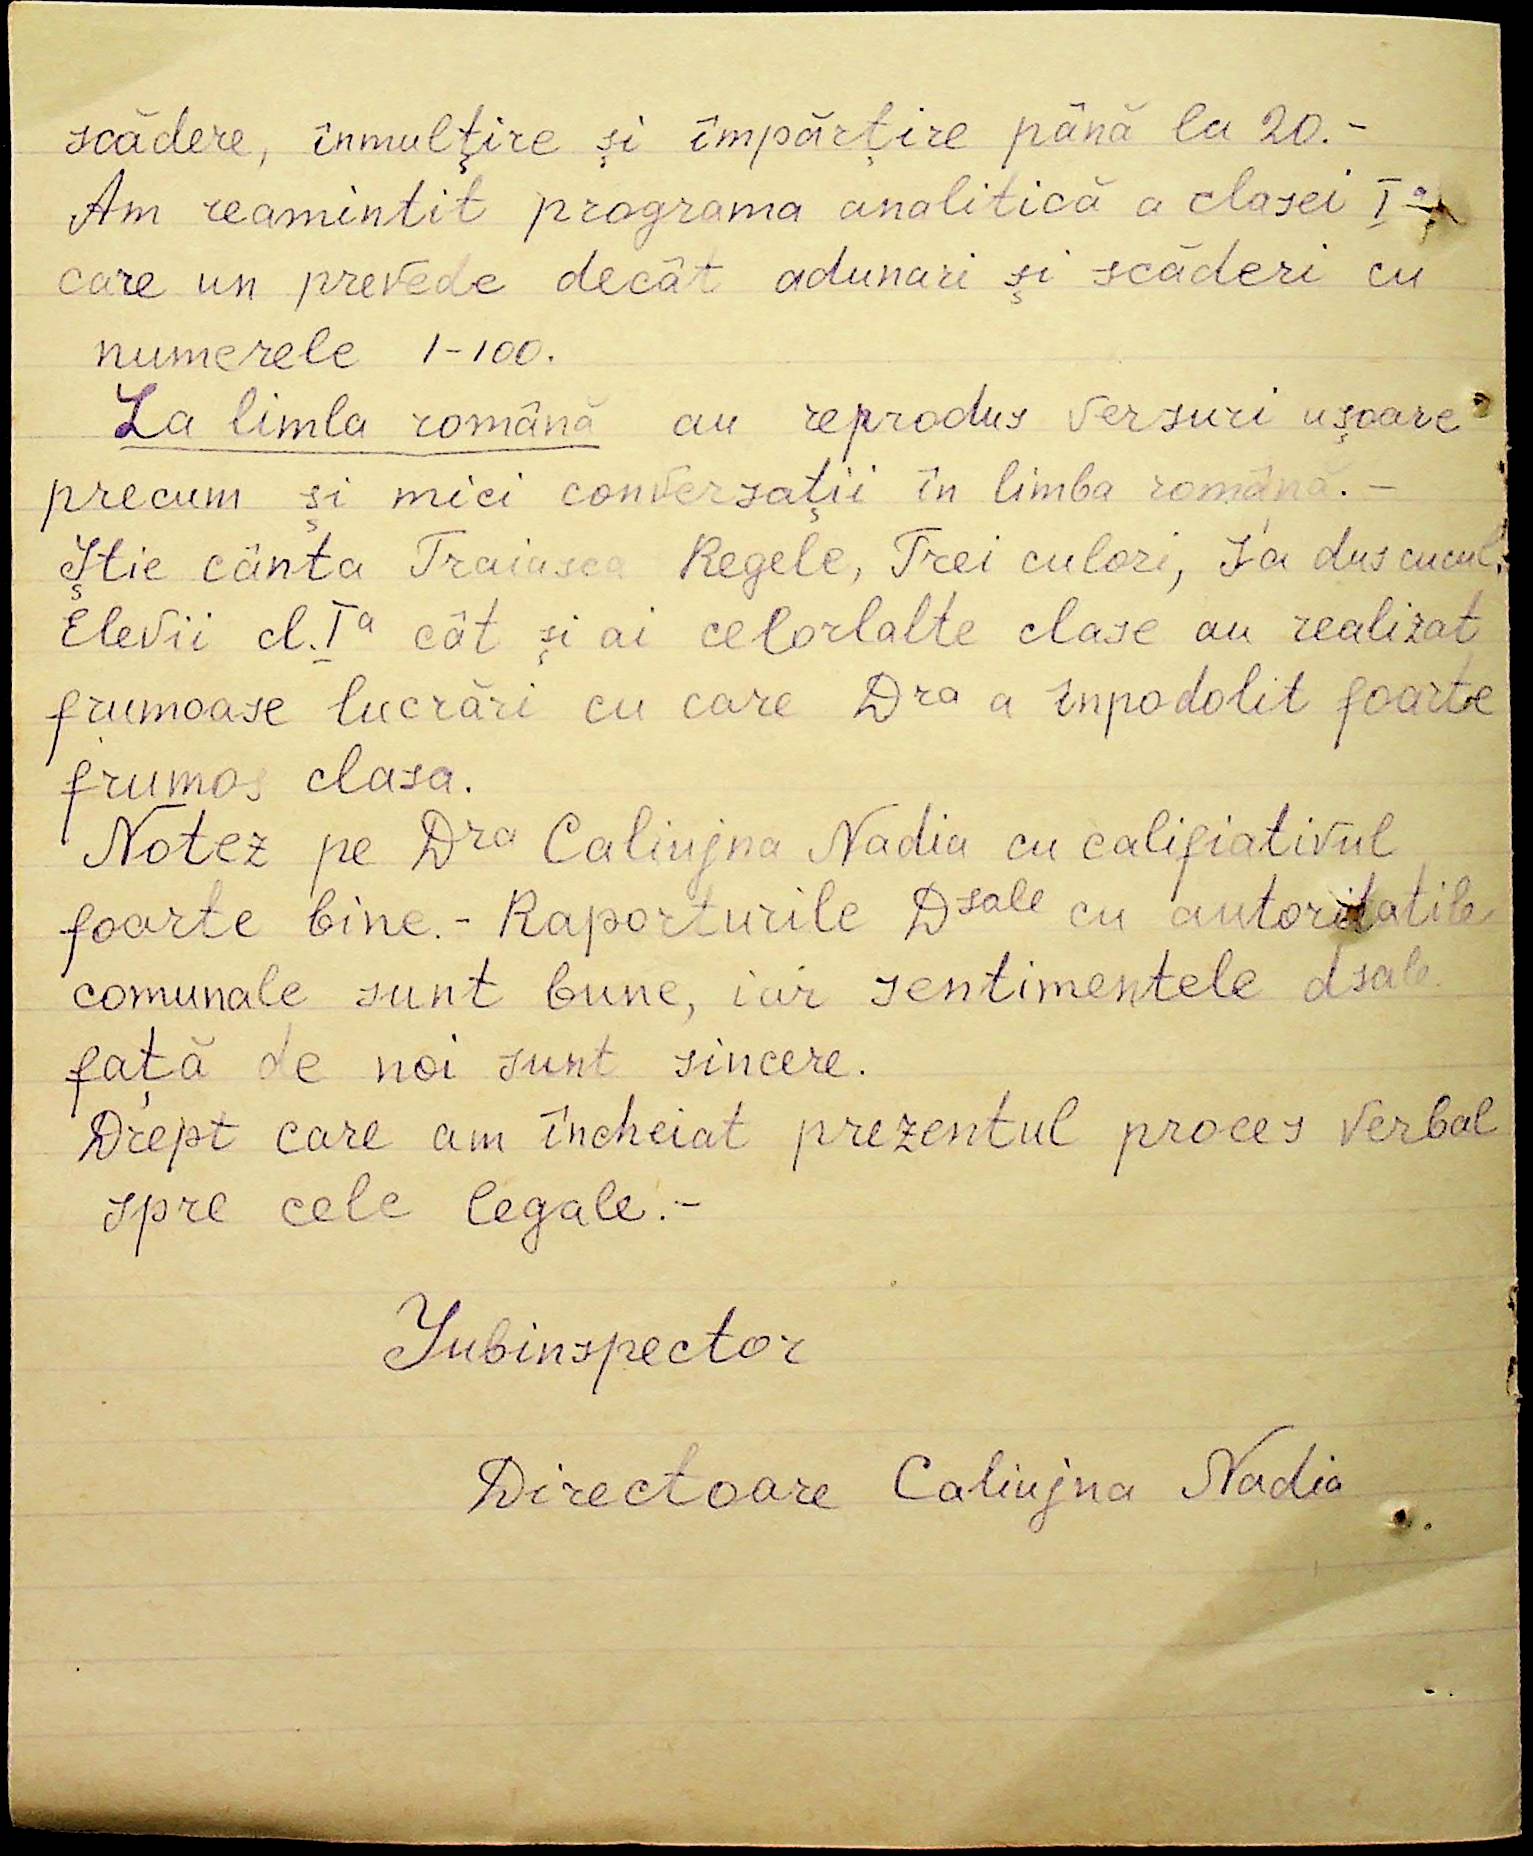 scădere, înmulţire şi împărţire până la 20.-
Am reamintit programa analitică a clasei I-a
care un prevede decât adunari şi scăderi cu
numerele 1-100.
La limla română au reprodus versuri uşoare
precum şi mici conversaţii în limba română.-
Ştie cânta Traiasca Regele, Trei culori, S'a dus cucul.
Elevii cl. Iª cât şi ai celorlalte clase au realizat
frumoase lucrări cu care Dra a înpodolit foarte
frumos clasa.
Notez pe Dra Caliujna Nadia cu califiativul
foarte bine.- Raporturile Dsale cu autoritatile
comunale sunt bune, iar sentimentele dsale
faţă de noi sunt sincere.
Drept care am încheiat prezentul proces verbal
spre cele legale.-
Subinspector
Directoare Caliujna Nadia